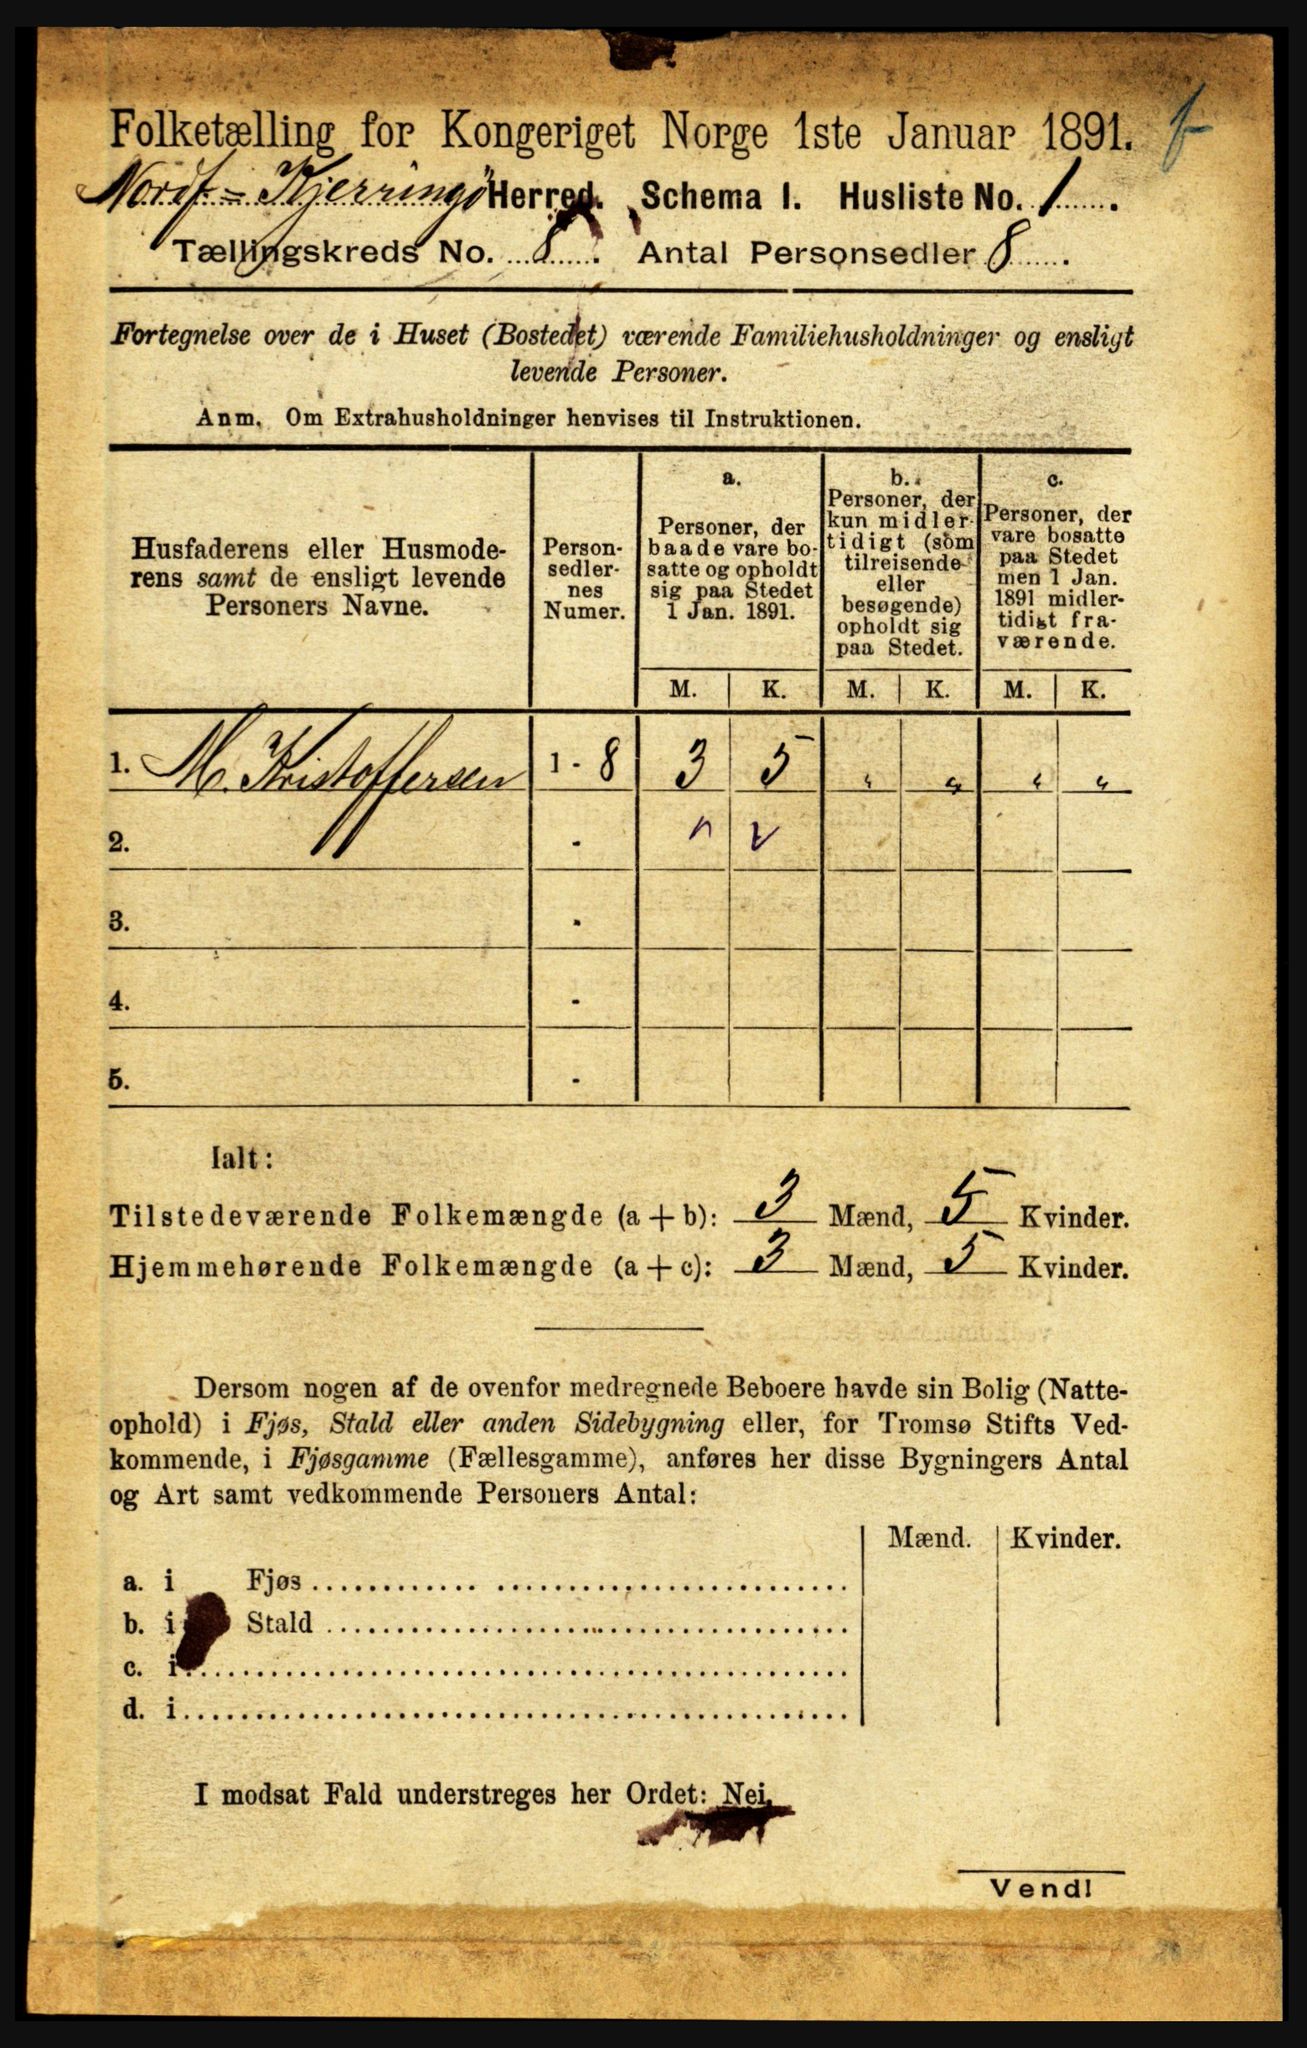 Folketælling for Kongeriget Norge 1ste Januar 1891.
Nordf.=Kjerringø Herred. Schema I. Husliste No. 1.
Tællingskreds No. 8. Antal Personsedler 8.
Fortegnelse over de i Huset (Bostedet) værende Familiehusholdninger og ensligt
levende Personer.
Anm. Om Extrahusholdninger henvises til Instruktionen.
Husfaderens eller Husmode-
rens samt de ensligt levende
Personers Navne.
Person-
sedler-
nes
Numer.
a.
Personer, der
baade vare bo-
satte og opholdt
sig paa Stedet
1 Jan. 1891.
b.
Personer, der
kun midler-
tidigt (som
tilreisende
eller
besøgende)
opholdt sig
paa Stedet.
c.
Personer, der
vare bosatte
paa Stedet
men 1 Jan.
1891 midler-
tidigt fra-
værende.
M. K. M. K. M. K.
1. M. Kristoffersen 1 - 8 3 5 " " " "
2. -
3. -
4. -
5. -
Ialt:
Tilstedeværende Folkemængde (a + b): 3 Mænd, 5 Kvinder.
Hjemmehørende Folkemængde (a + c): 3 Mænd, 5 Kvinder.
Dersom nogen af de ovenfor medregnede Beboere havde sin Bolig (Natte-
ophold) i Fjøs, Stald eller anden Sidebygning eller, for Tromsø Stifts Ved-
kommende, i Fjøsgamme (Fællesgamme), anføres her disse Bygningers Antal
og Art samt vedkommende Personers Antal:
Mænd. Kvinder.
a. i Fjøs
b. i Stald
c. i
d. i
I modsat Fald understreges her Ordet: Nei.
Vend!